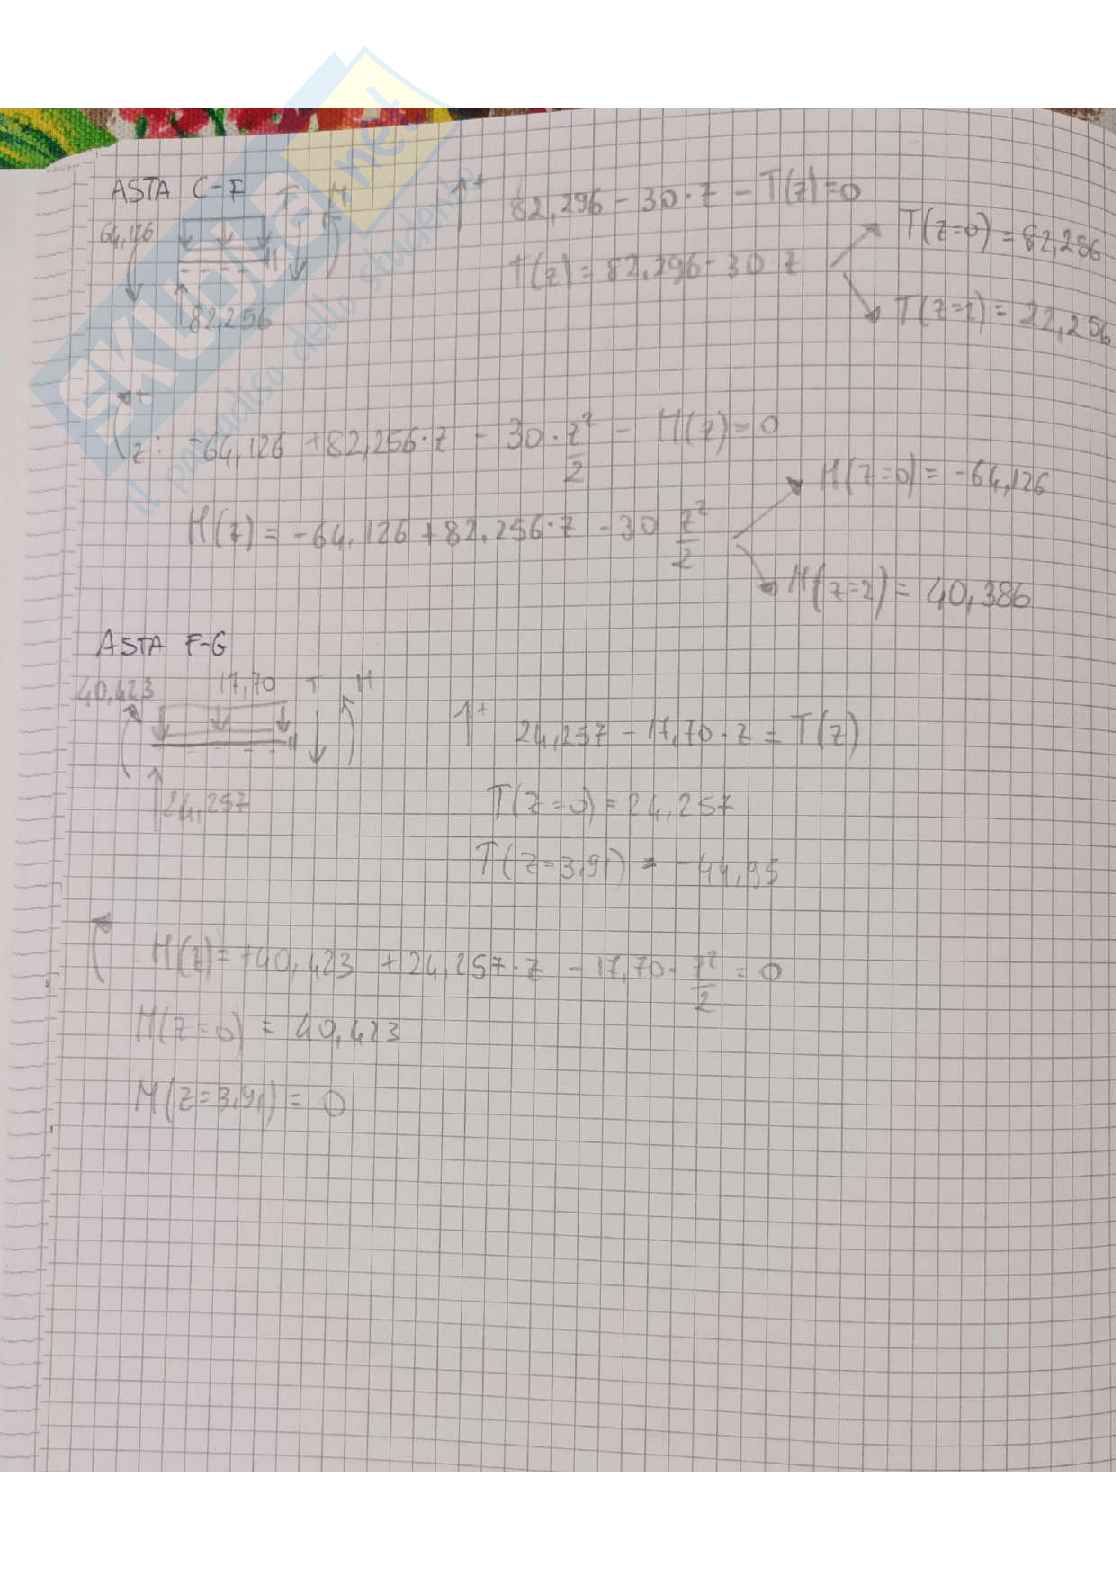 ASTA C-F T M
64,126
82,256
82,296 - 30·z - T(z)=0
T(z) = 82,296 - 30 z
T(z=0) = 82,256
T(z=2) = 22,256
z: -64,126 +82,256·z - 30·z²/2 - M(z)=0
M(z) = -64,126 +82,256·z - 30 z²/2
M(z=0) = -64,126
M(z=2) = 40,386
ASTA F-G
40,423 17,70 T M
24,257
24,257 - 17,70·z = T(z)
T(z=0) = 24,257
T(z=3,91) = -44,95
M(z) = +40,423 +24,257·z - 17,70·z²/2 = 0
M(z=0) = 40,423
M(z=3,91) = 0
SKUOLA.net
il paradiso dello studente